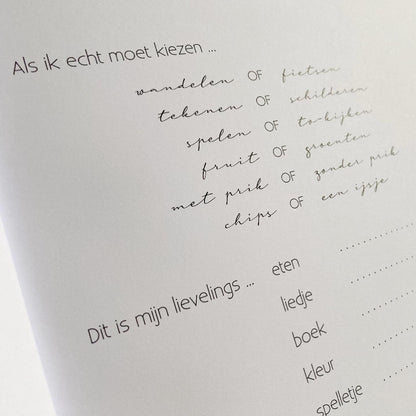 Als ik echt moet kiezen ...
wandelen OF fietsen
tekenen OF schilderen
spelen OF tv-kijken
fruit OF groenten
met prik OF zonder prik
chips OF een ijsje
Dit is mijn lievelings ...
eten
liedje
boek
kleur
spelletje